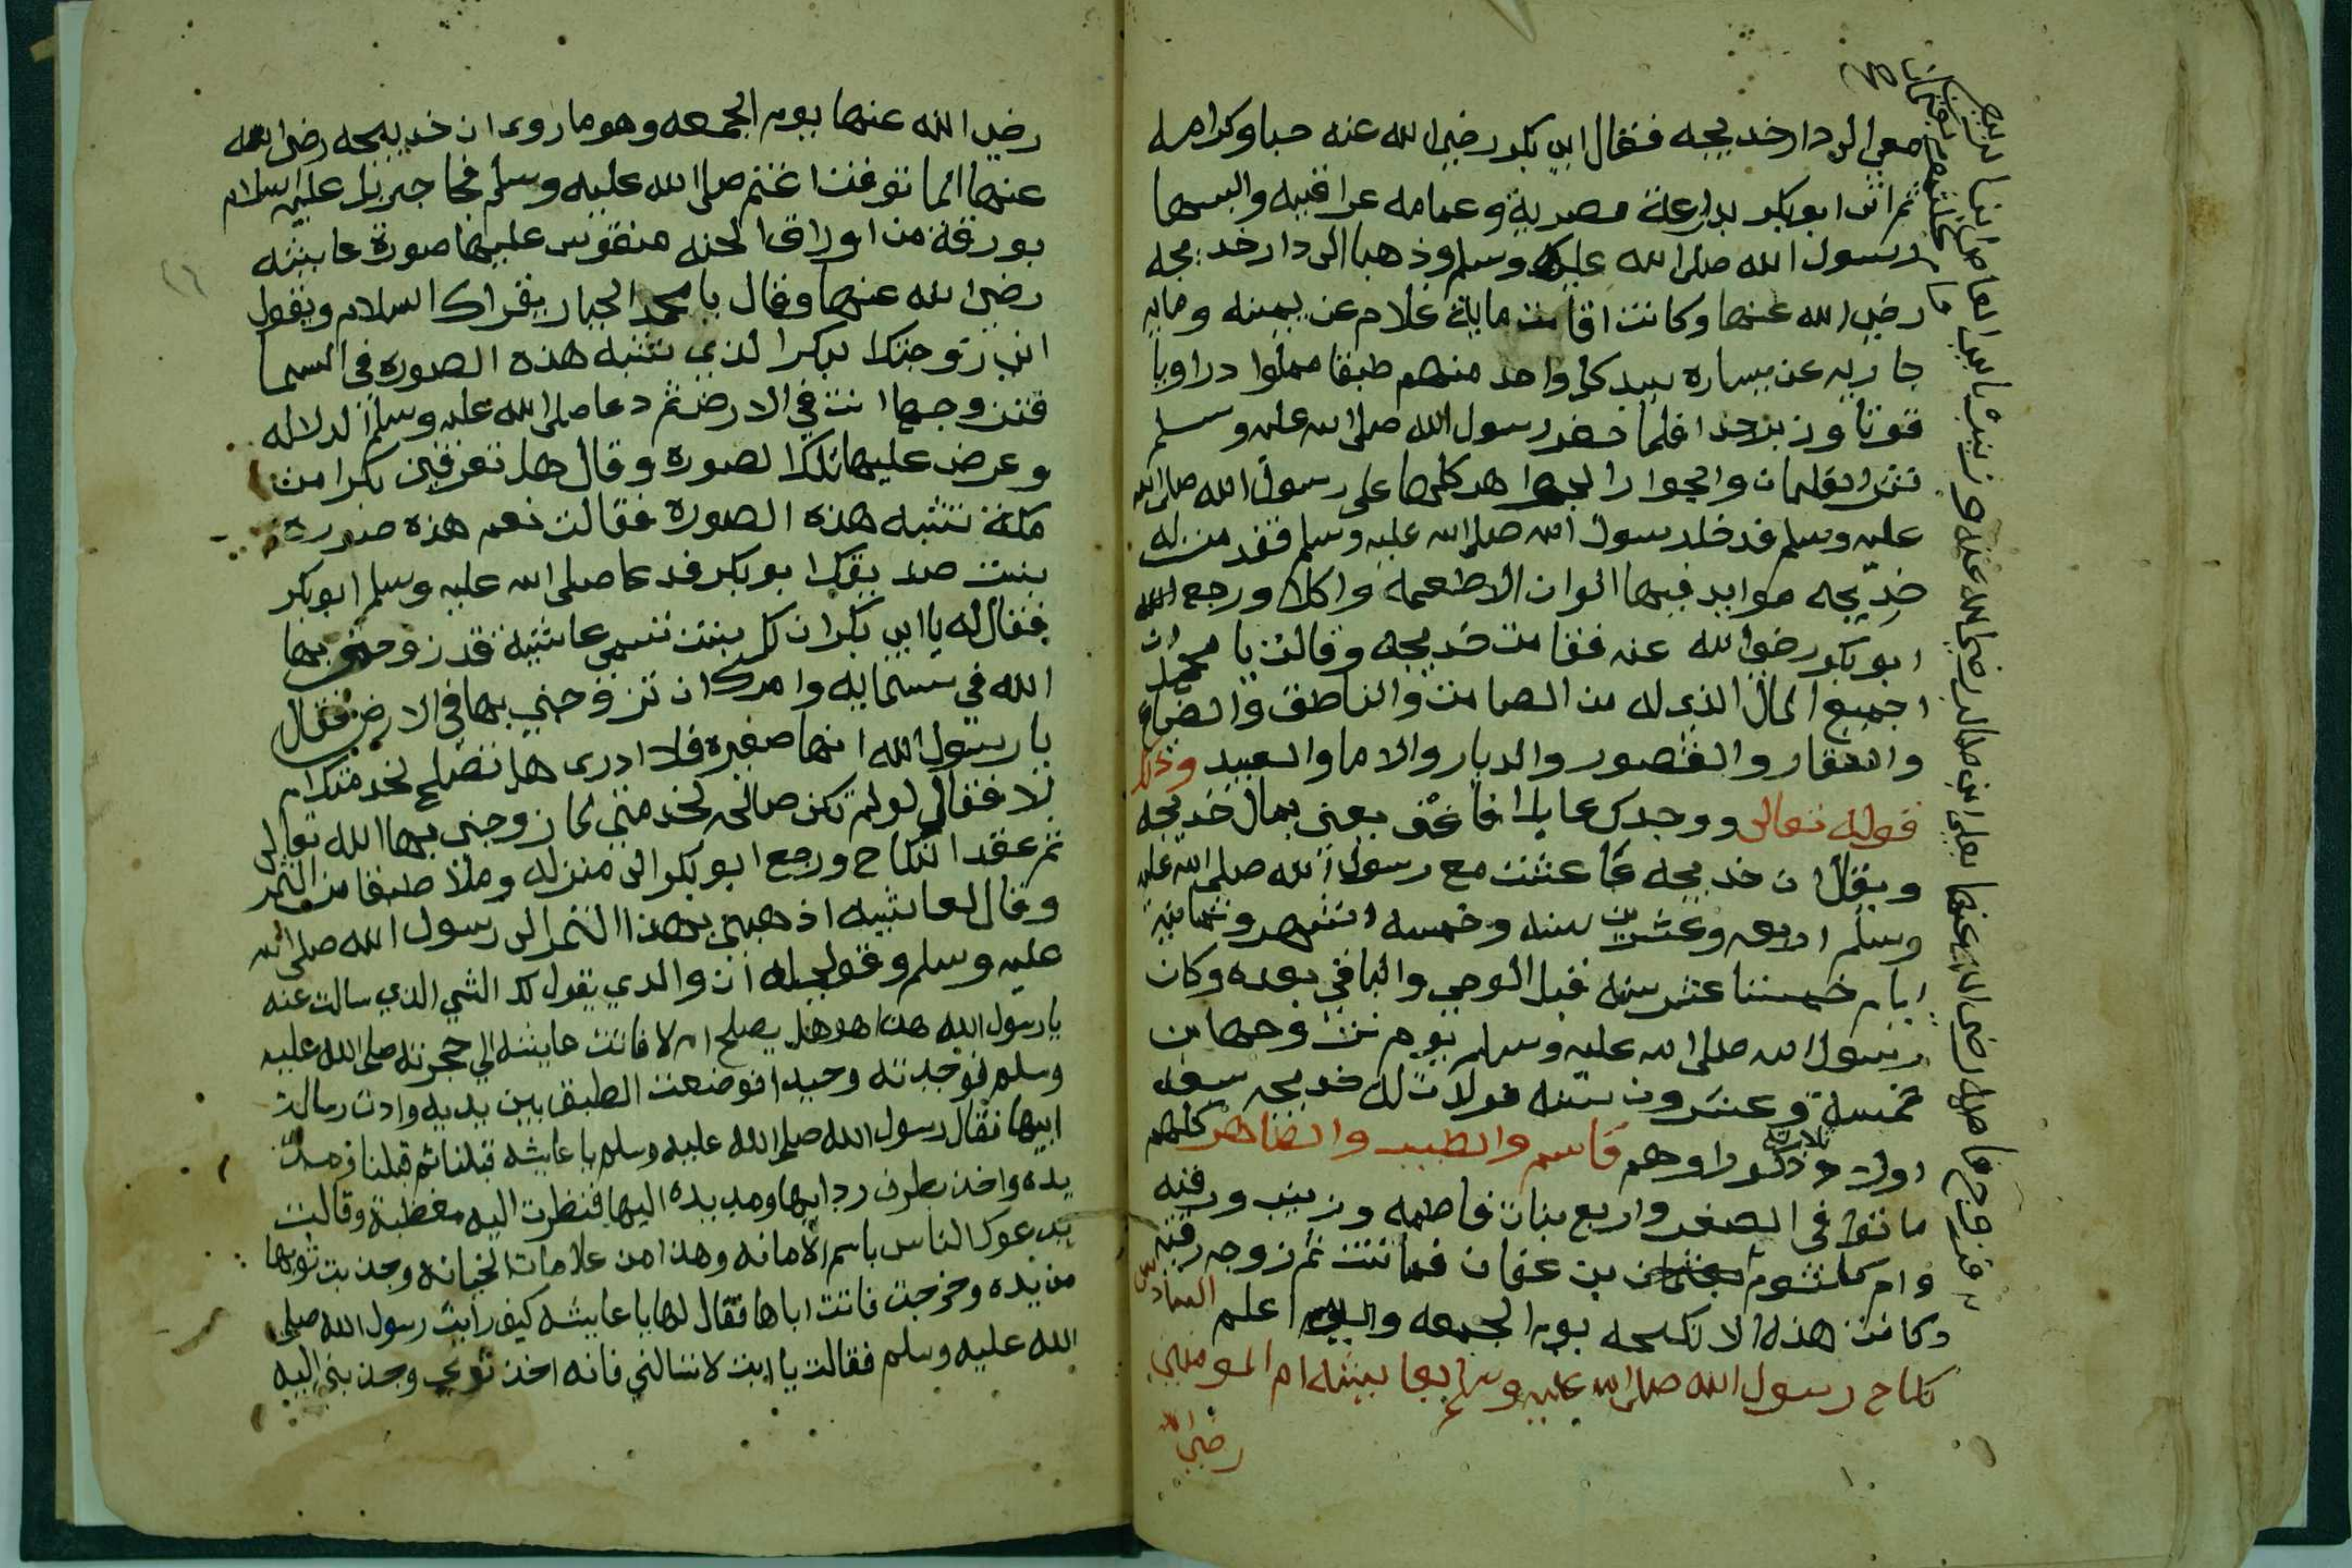 معي الى دار خديجه فقال ابى بكر رضي الله عنه حبا وكرامه
ثم اتى ابو بكر بدارعة مصرية وعمامه عراقيه والبسها
رسول الله صلى الله عليه وسلم وذهبا الى دار خديجه
رضي الله عنها وكانت اقامت ماية غلام عن يمينه وماية
جاريه عن يساره بيد كل واحد منهم طبقا مملوا دراويا
قوتا وزبرجدا فلما حضر رسول الله صلى الله عليه وسلم
نثر الغلمان والجوار الجواهر كلها على رسول الله صلى الله
عليه وسلم فدخل رسول الله صلى الله عليه وسلم فقدمت له
خديجه موايد فيها الوان الاطعمه واكلا ورجع
ابو بكر رضي الله عنه فقامت خديجه وقالت يا محمد ان
اجميع المال الذي له من الصامت والناطق والضياع
والعقار والقصور والديار والاما والعبيد وذلك
قوله تعالى ووجدك عايلا فاغنى يعني بمال خديجه
ويقال ان خديجه عاشت مع رسول الله صلى الله عليه
وسلم اربعه وعشرين سنه وخمسه اشهر وثمانية
ايام خمستا عشر سنه قبل الوحي والباقي بعده وكان
رسول الله صلى الله عليه وسلم يوم تزوجها بن
خمسة وعشرون سنه فولدت له خديجه سبعه
اولاد ثلاثة ذكورا وهم قاسم والطيب والطاهر كلهم
ماتوا في الصغر واربع بنات فاطمه وزينب ورقيه
وام كلثوم بعثمان بن عفان فماتت ثم زوجه رقيه
وكانت هذه الانكحه يوم الجمعه والله اعلم السادس
نكاح رسول الله صلى الله عليه وسلم بعايشه ام المومنين
رضي الله
رضي الله عنها يوم الجمعه وهو ما روى ان خديجه رضى الله
عنها لما توفت اغتم صلى الله عليه وسلم فجا جبريل عليه السلام
بورقة من اوراق الجنه منقوش عليها صورة عايشه
رضي الله عنها وقال يا محمد الجبار يقراك السلام ويقول
اني زوجتك بكرا الذي تشبه هذه الصوره في السما
فتزوجها انت في الارض ثم دعا صلى الله عليه وسلم الدلاله
وعرض عليها تلك الصورة وقال هل تعرفين بكرا من
مكة تشبه هذه الصورة فقالت نعم هذه صورة
بنت صديقك ابو بكر فدعا صلى الله عليه وسلم ابو بكر
فقال له يا ابى بكر ان لك بنت تسمى عائشة قد زوجني بها
الله في سمايه وامرك ان تزوجني بها في الارض فقال
يا رسول الله انها صغيره فلا ادرى هل تصلح لخدمتك ام
لا فقال لو لم تكن صالحه لخدمتي لما زوجني بها الله تعالى
ثم عقد النكاح ورجع ابو بكر الى منزله وملا طبقا من التمر
وقال لعايشه اذهبي بهذا التمر الى رسول الله صلى الله
عليه وسلم وقولي له ان والدي يقول لك الشي الذي سالت عنه
يا رسول الله هذا هو هل يصلح ام لا فاتت عايشه الي حجرته صلى الله عليه
وسلم فوجدته وحيدا فوضعت الطبق بين يديه وادت رسالة
ابيها فقال رسول الله صلى الله عليه وسلم يا عايشه قبلنا ثم قبلنا ومد
يده واخذ بطرف ردايها ومد يده اليها فنظرت اليه مغضبة وقالت
يدعوك الناس باسم الامانه وهذا من علامات الخيانه وجذبت ثوبها
من يده وخرجت فاتت اباها فقال لها يا عايشه كيف رايت رسول الله صلى
الله عليه وسلم فقالت يا ابت لا تسالني فانه اخذ ثوبي وجذبني اليه